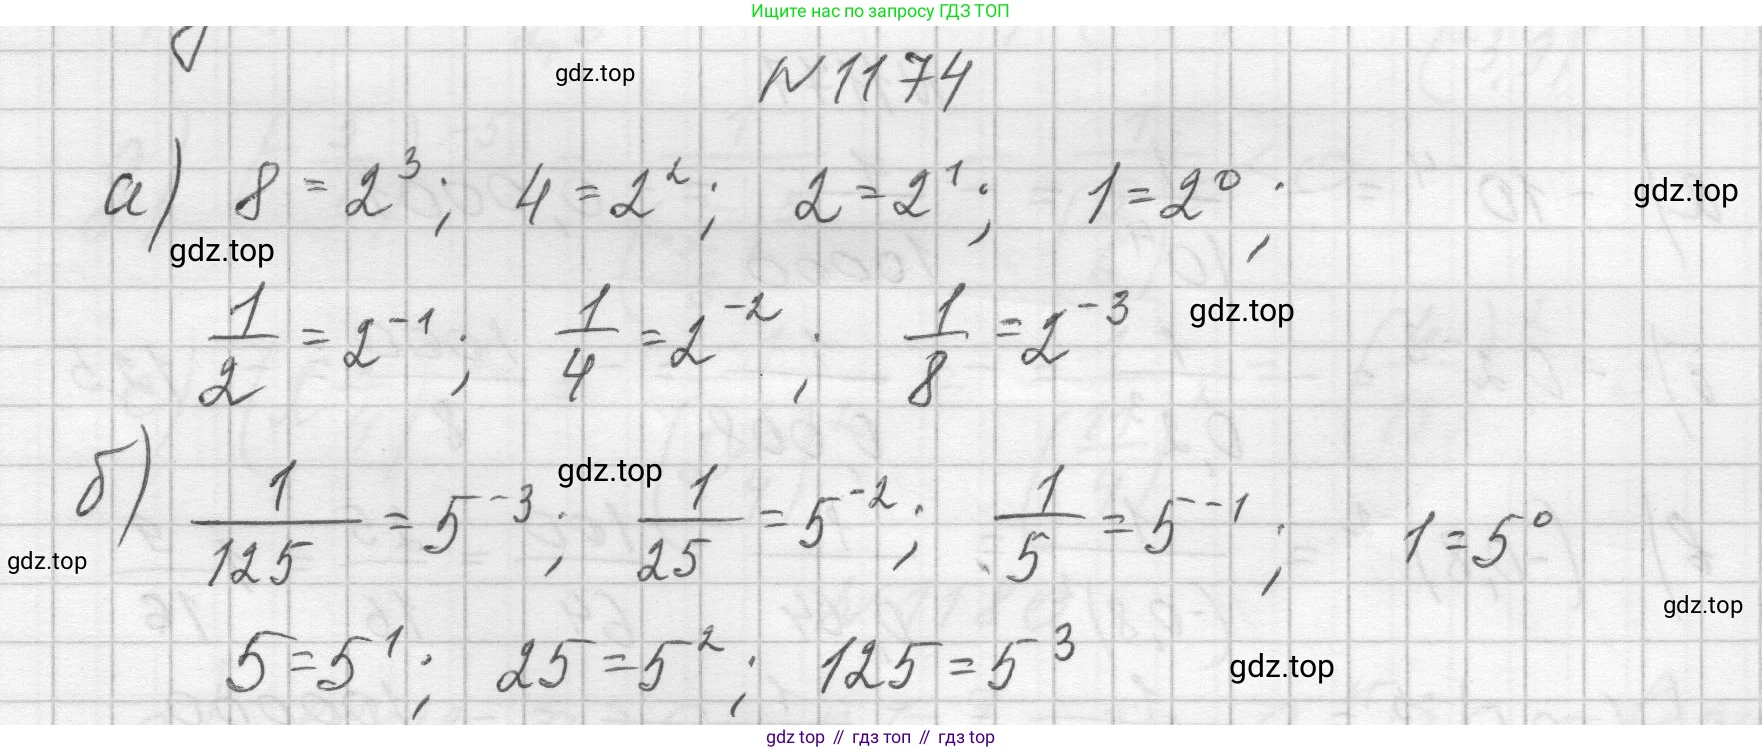 Ищите нас по запросу ГДЗ ТОП
gdz.top № 1174
а) 8 = 2³; 4 = 2²; 2 = 2¹; 1 = 2⁰; gdz.top
gdz.top
1/2 = 2⁻¹; 1/4 = 2⁻²; 1/8 = 2⁻³ gdz.top
gdz.top
б) 1/125 = 5⁻³; 1/25 = 5⁻²; 1/5 = 5⁻¹; 1 = 5⁰
gdz.top
gdz.top
5 = 5¹; 25 = 5²; 125 = 5³ gdz.top
gdz top // гдз топ // гдз top